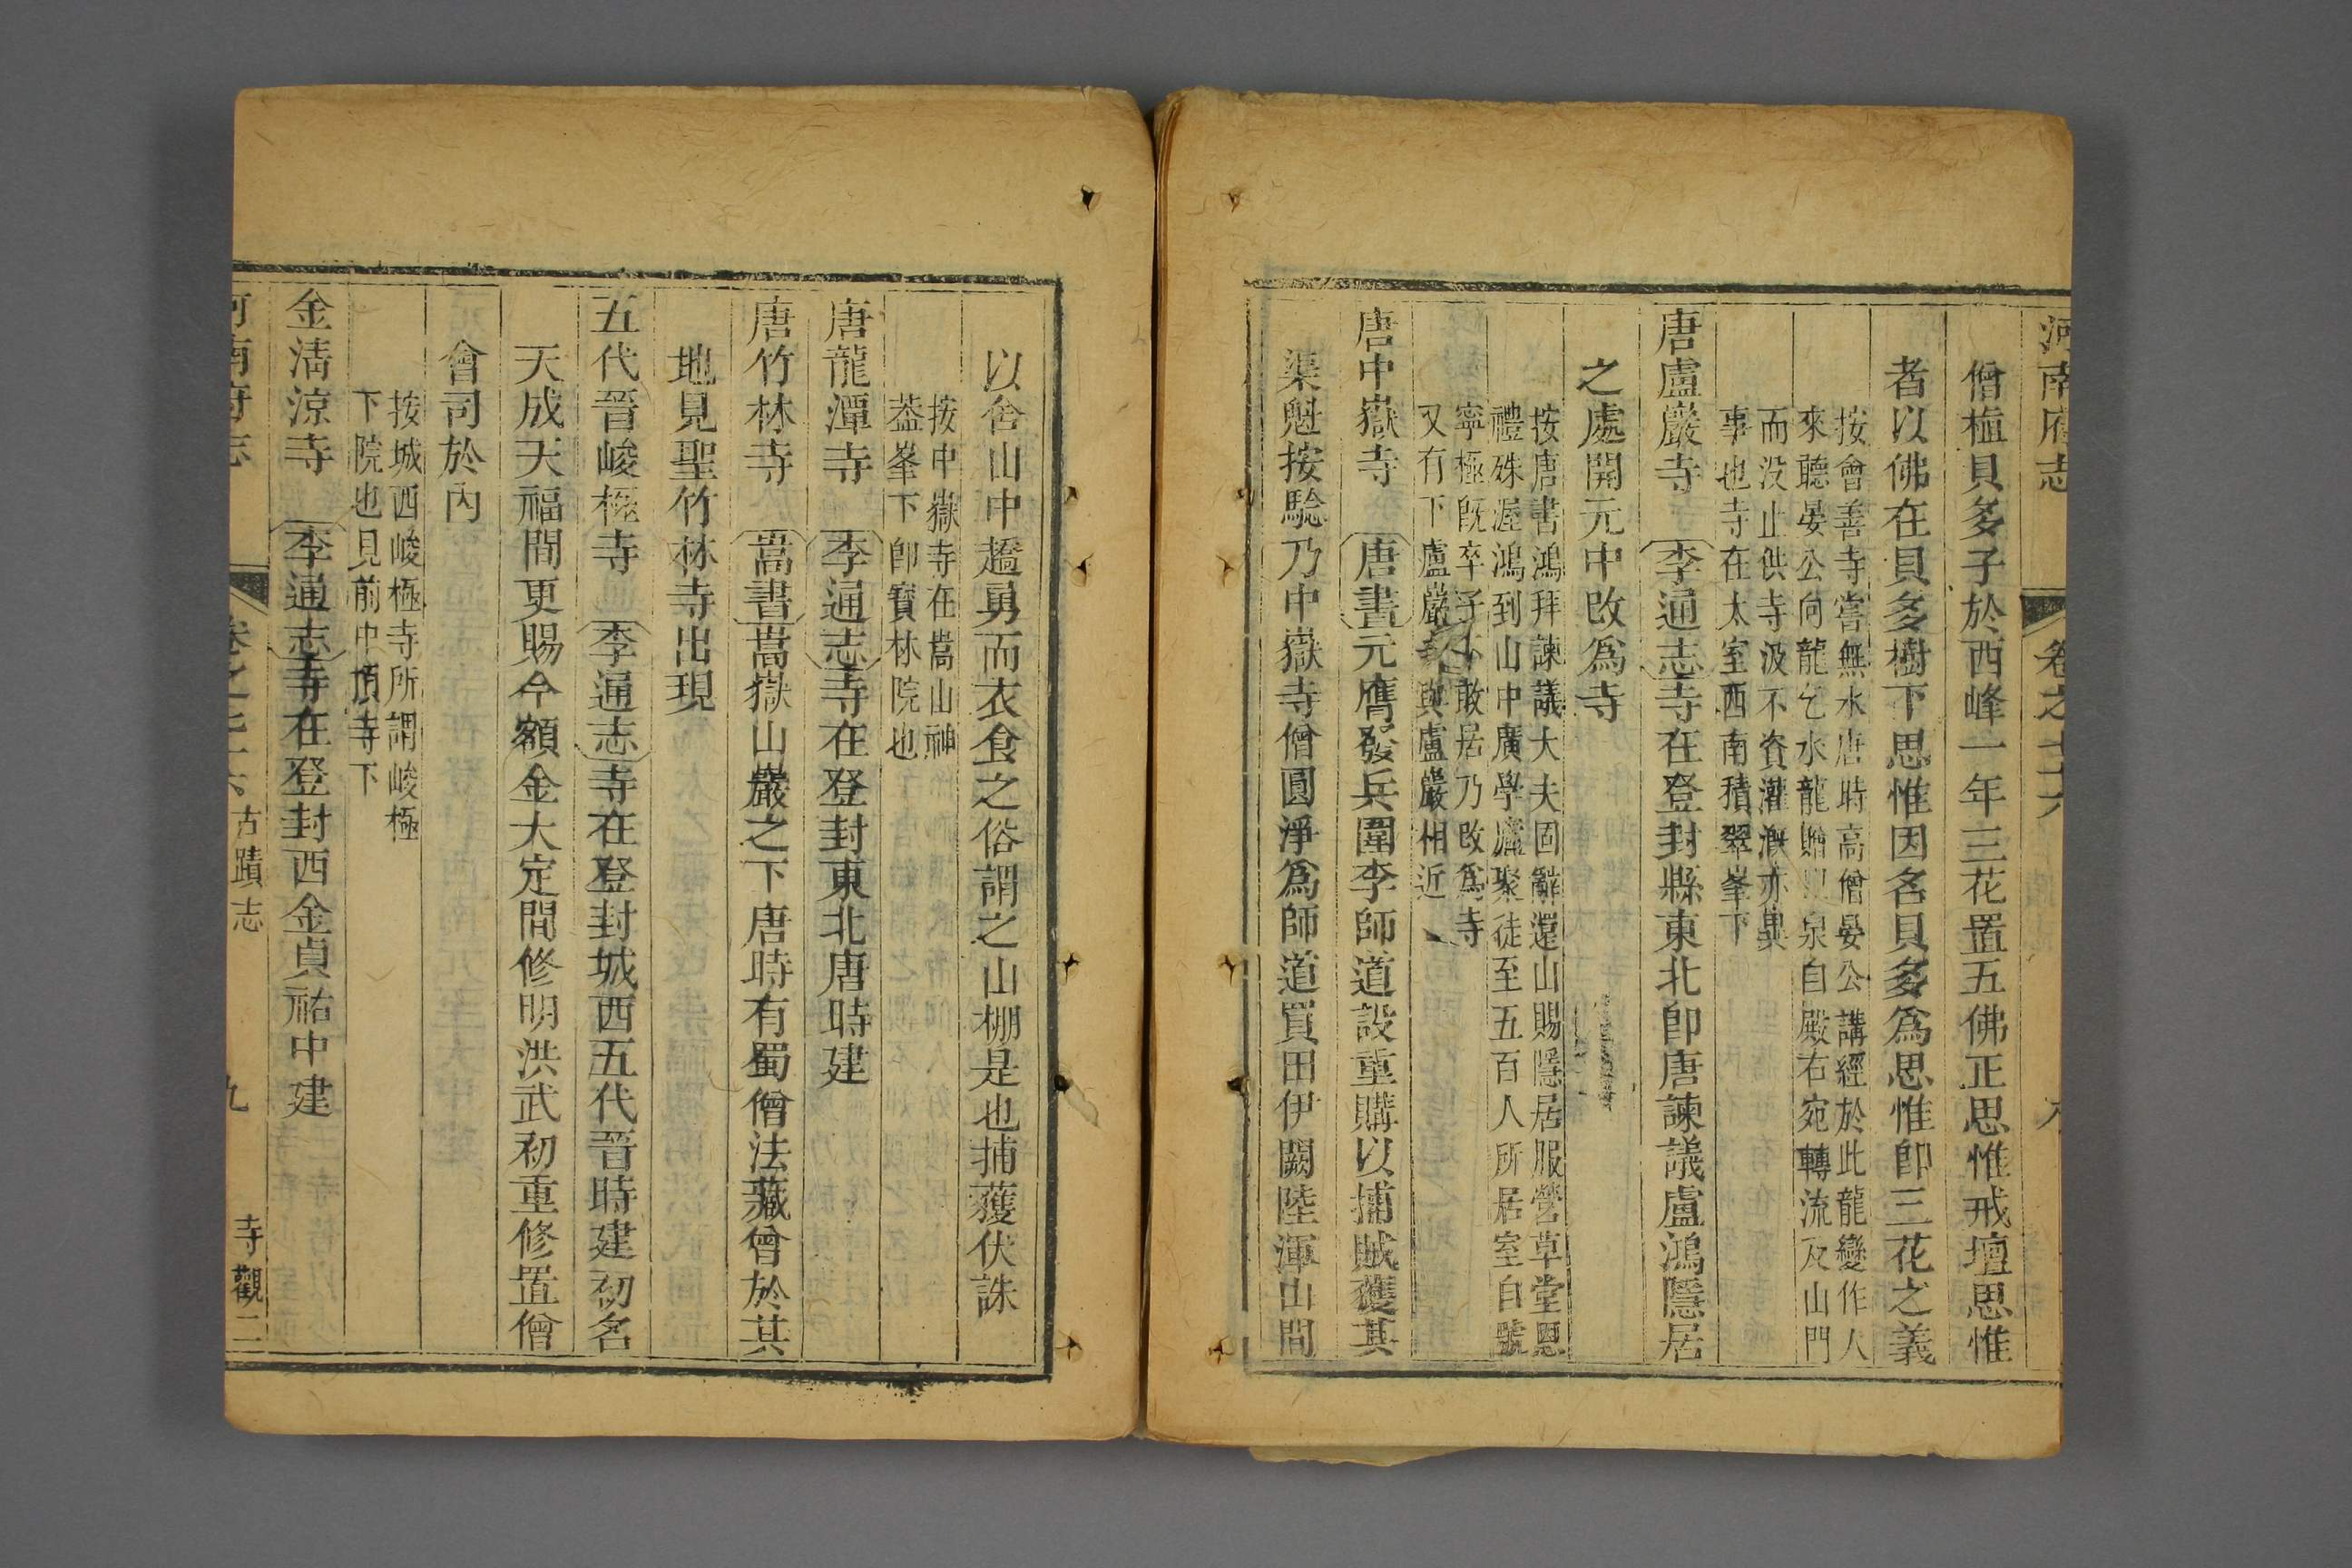 河南府志　卷之七十六
僧植貝多子於西峰一年三花置五佛正思惟戒壇思惟
者以佛在貝多樹下思惟因名貝多爲思惟卽三花之義
按會善寺嘗無水唐時高僧晏公講經於此龍變作人
來聽晏公向龍乞水龍贈 泉自殿右宛轉流及山門
而没止供寺汲不資灌漑亦異
事也寺在太室西南積翠峯下
唐盧巖寺　李通志寺在登封縣東北卽唐諫議盧鴻隱居
之處開元中改爲寺
按唐書鴻拜諫議大夫固辭還山賜隱居服營草堂恩
禮殊渥鴻到山中廣學廬聚徒至五百人所居室自號
寧極旣卒子 敢居乃改爲寺
又有下盧巖寺與盧巖相近
唐中嶽寺　唐書元膺發兵圍李師道設重購以捕賊獲其
渠魁按驗乃中嶽寺僧圓淨爲師道買田伊闕陸渾山間
以舍山中趫勇而衣食之俗謂之山棚是也捕獲伏誅
按中嶽寺在嵩山神
葢峯下卽寶林院也
唐龍潭寺　李通志寺在登封東北唐時建
唐竹林寺　嵩書嵩嶽山巖之下唐時有蜀僧法藏曾於其
地見聖竹林寺出現
五代晉峻極寺　李通志寺在登封城西五代晉時建初名
天成天福間更賜今額金大定間修明洪武初重修置僧
會司於內
按城西峻極寺所謂峻極
下院也見前中頂寺下
金清涼寺　李通志寺在登封西金貞祐中建
河南府志　卷之七十六　古蹟志　九　寺觀二